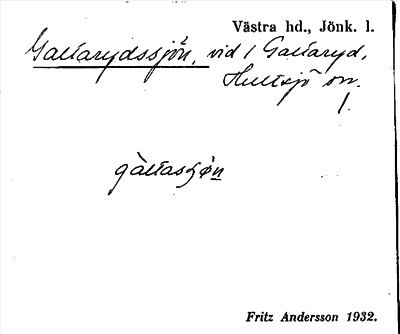 Västra hd., Jönk. l.
Galtarydssjön, vid 1 Galtaryd,
Hultsjö sn.
1.
gàltasjön
Fritz Andersson 1932.